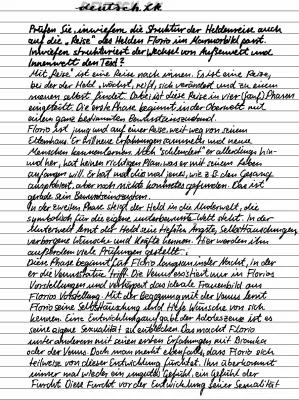 deutsch LK
Prüfen Sie, inwiefern die Struktur der Heldenreise auch
auf die „Reise" des Helden Florio im Marmorbild passt.
Inwiefern strukturiert der Wechsel von Außenwelt und
Innenwelt den Text?
Mit Reise ist eine Reise nach innen. Es ist eine Reise,
bei der der Held wächst, reift, sich verändert und zu einem
neuen selbst findet. Dabei ist diese Reise in vier Phasen
eingeteilt. Die erste Phase beginnt in der Oberwelt mit
einem ganz bestimmten Bewusstseinszustand.
Florio ist jung und auf einer Reise, weit weg von seinem
Elternhaus. Er will neue Erfahrungen sammeln und neue
Menschen kennen lernen. Bitte „schlendert" er allerdings hin-
und her, hat keinen richtigen Plan, was er mit seinem Leben
anfangen will. Er hat mal dies mal jenes, wie z.B. den Gesang
ausprobiert, aber noch nichts konkretes gefunden. Das ist
gerade sein Bewusstseinszustand.
In der zweiten Phase steigt der Held in die Unterwelt, die
symbolisch für die eigene unterbewusste Welt steht. In der
Unterwelt lernt der Held seine tiefsten Ängste, Selbsttäuschungen,
verborgene Wünsche und Kräfte kennen. Hier werden ihm
außerdem viele Prüfungen gestellt.
Diese Phase beginnt bei Florio in der Nacht, in der
er die Venusstatue trifft. Die Venus existiert nur in Florios
Vorstellungen und verkörpert das ideale Frauenbild aus
Florios Vorstellung. Mit der Begegnung mit der Venus lernt
Florio seine Selbsttäuschung und tiefe Wünsche von sich
kennen. Eine Entwicklungsaufgabe der Adoleszenz ist es
seine eigene Sexualität zu entdecken. Das macht Florio
unter anderem mit seinen ersten Erfahrungen mit Bianka
oder der Venus. Doch man merkt ebenfalls, dass Florio sich
teilweise von dieser Entwicklung fürchtet. Ihn überkommt
immer mal wieder ein ungutes Gefühl, ein Gefühl der
Furcht. Diese Furcht vor der Entwicklung seiner Sexualität